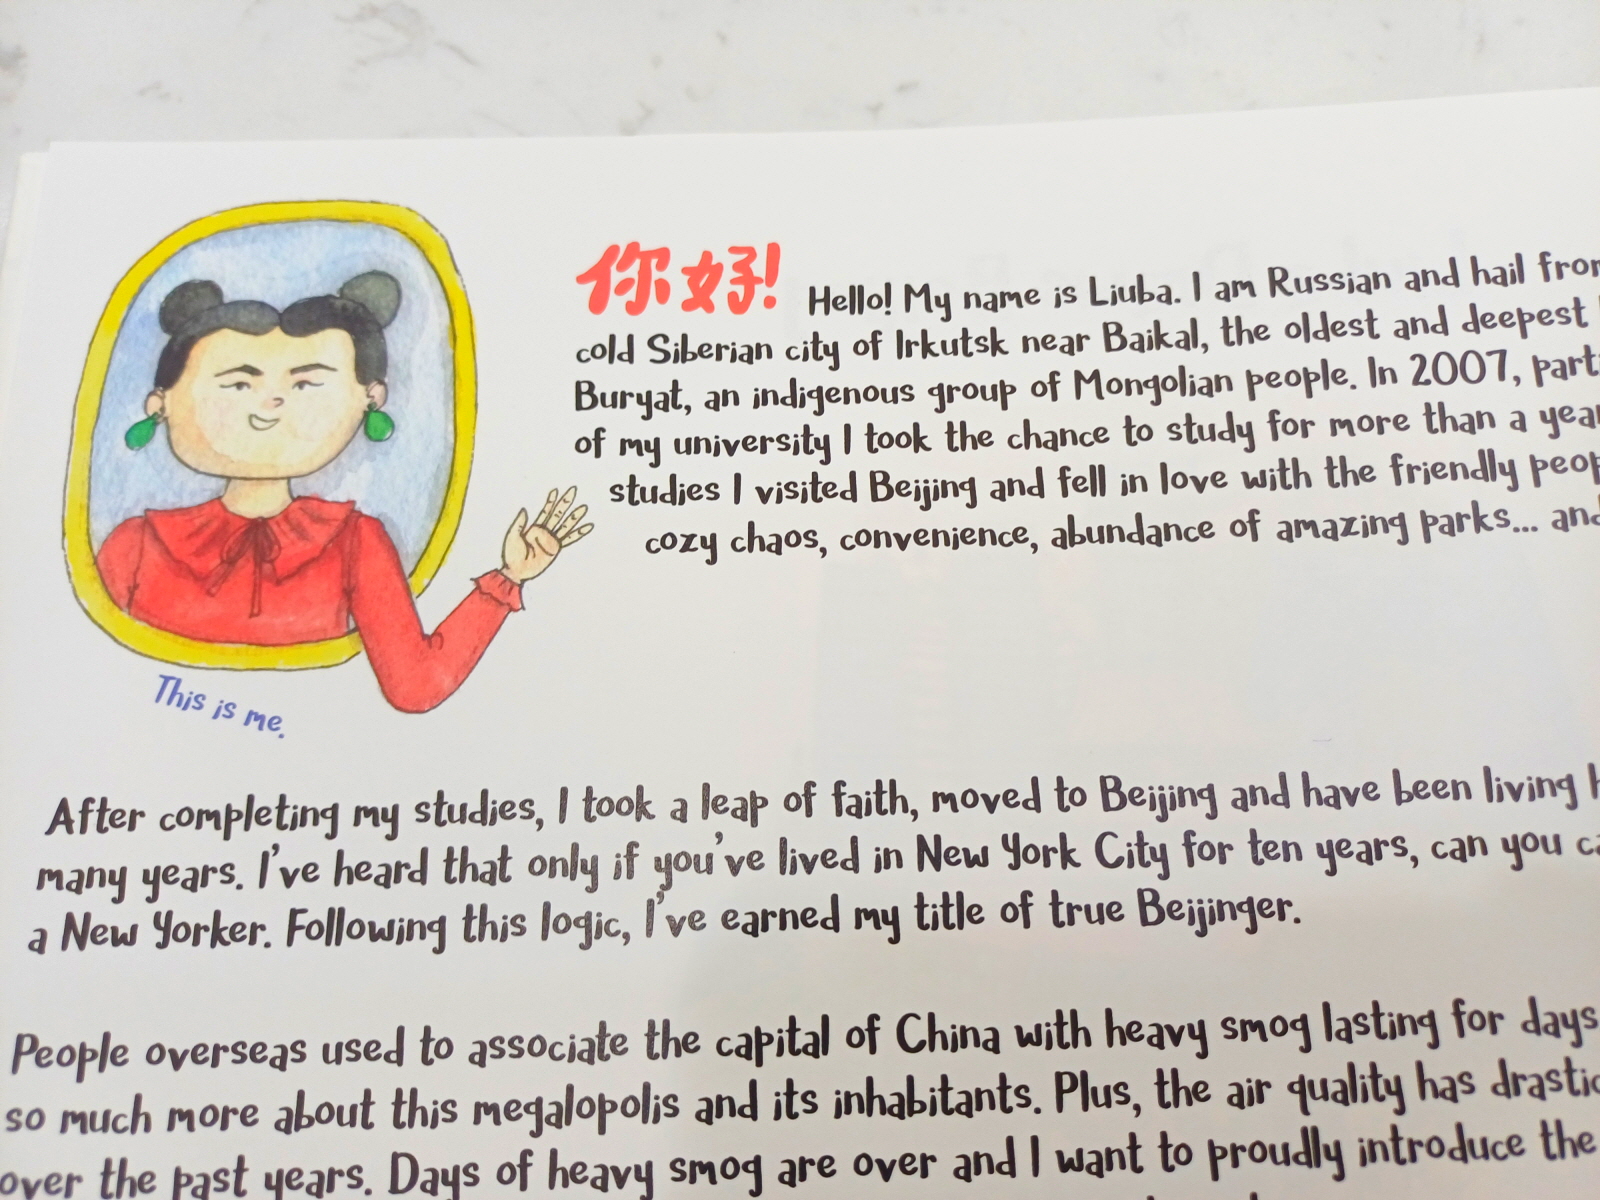 你好! Hello! My name is Liuba. I am Russian and hail from
cold Siberian city of Irkutsk near Baikal, the oldest and deepest
Buryat, an indigenous group of Mongolian people. In 2007, part
of my university I took the chance to study for more than a year
studies I visited Beijing and fell in love with the friendly peop
cozy chaos, convenience, abundance of amazing parks... and
This is me.
After completing my studies, I took a leap of faith, moved to Beijing and have been living h
many years. I've heard that only if you've lived in New York City for ten years, can you ca
a New Yorker. Following this logic, I've earned my title of true Beijinger.
People overseas used to associate the capital of China with heavy smog lasting for days
so much more about this megalopolis and its inhabitants. Plus, the air quality has drastic
over the past years. Days of heavy smog are over and I want to proudly introduce the